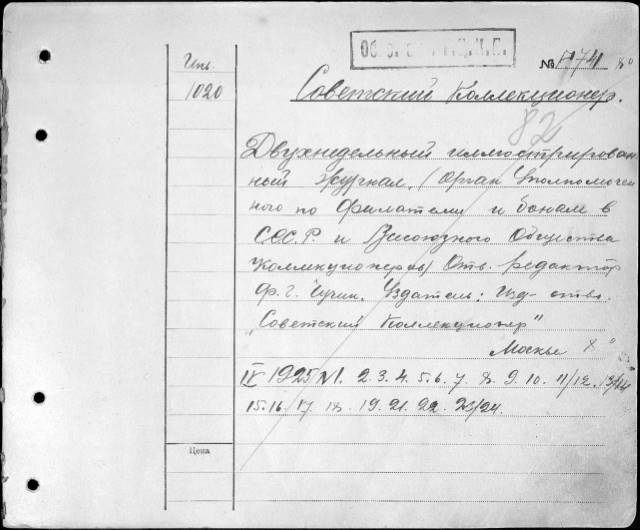 Инв.
1020
№ 1774
Советский Коллекционер.
82
Двухнедельный иллюстрирован
ный журнал. (Орган Уполномочен
ного по филателии и бонам в
С.С.С.Р. и Всесоюзного Общества
Коллекционеров) Отв. редактор
Ф. Г. Чучин. Издатель: Изд-ство.
„Советский Коллекционер"
Москва
IV 1925 №1. 2. 3. 4. 5. 6. 7. 8. 9. 10. 11/12. 13/14
15. 16. 17. 18. 19. 21. 22. 23/24.
Цена